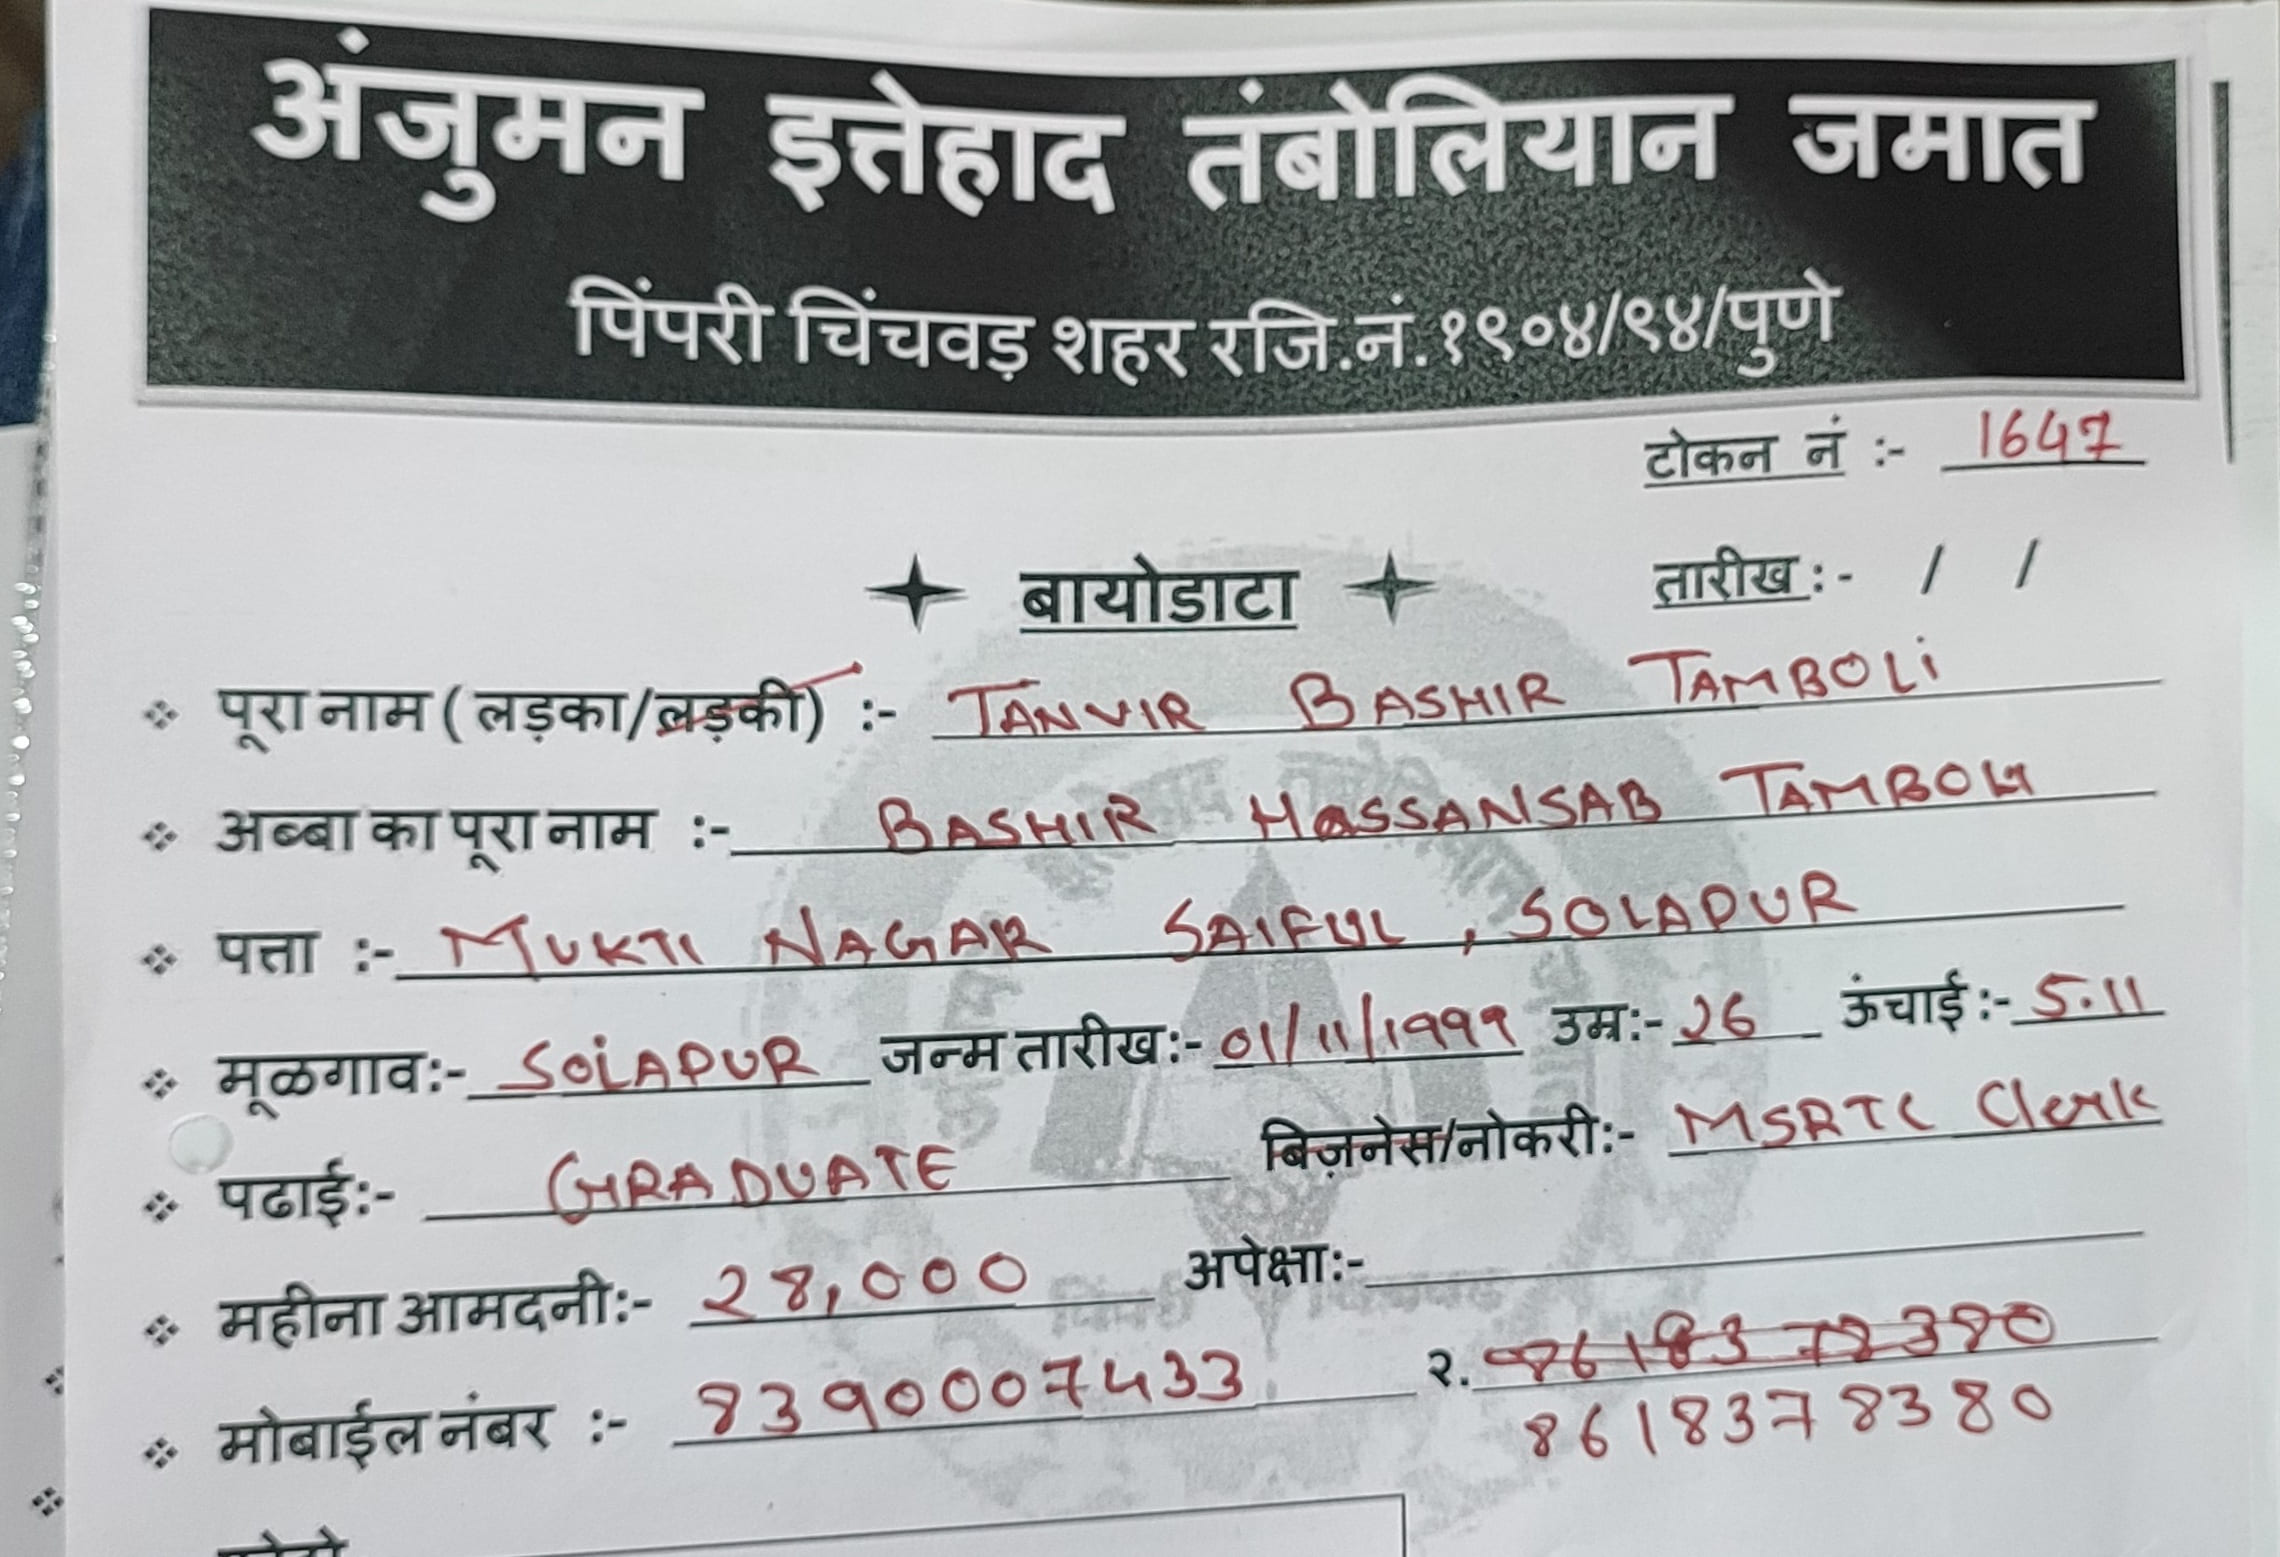 अंजुमन इत्तेहाद तंबोलियान जमात
पिंपरी चिंचवड़ शहर रजि.नं.१९०४/९४/पुणे
टोकन नं :- 1647
बायोडाटा
तारीख :- / /
पूरा नाम ( लड़का/लड़की) :- TANVIR BASHIR TAMBOLi
अब्बा का पूरा नाम :- BASHIR HaSSANSAB TAMBOLI
पत्ता :- MUKTI NAGAR SAIFUL , SOLAPUR
मूळगाव:- SOLAPUR जन्म तारीख:- 01/11/1999 उम्र:- 26 ऊंचाई:- 5.11
पढाई:- GRADUATE बिज़नेस/नोकरी:- MSRTC Clerk
महीना आमदनी:- 28,000 अपेक्षा:-
मोबाईल नंबर :- 8390007433 २.
8618378380